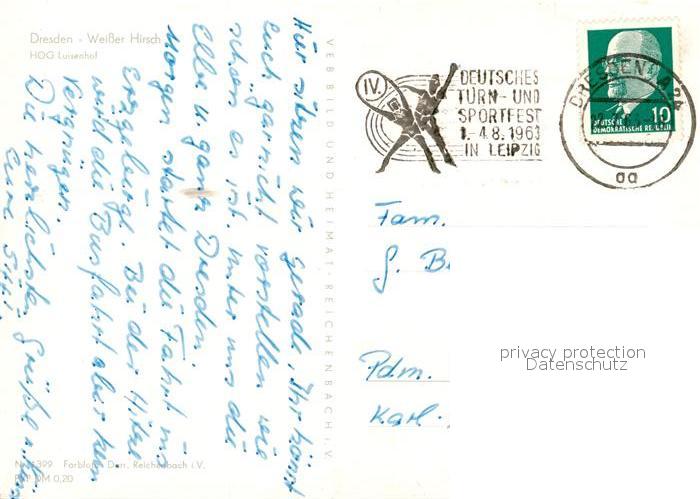 Dresden - Weißer Hirsch
HOG Luisenhof
Hier sitzen wir gerade, Ihr könnt
euch gar nicht vorstellen wie
schön es ist. Unter uns die
Elbe u. ganz Dresden.
Morgen startet die Fahrt ins
Erzgebirge. Bei der Hitze
wird die Busfahrt aber kein
Vergnügen.
Die herzlichsten Grüße
Eure
VEB BILD UND HEIMAT · REICHENBACH i. V.
IV.
DEUTSCHES
TURN- UND
SPORTFEST
1.-4.8.1963
IN LEIPZIG
DRESDEN A 24
aa
DEUTSCHE
DEMOKRATISCHE REPUBLIK
10
Fam.
G. B.
Pdm.
Karl-
privacy protection
Datenschutz
Farbfoto: Reichenbach i. V.
DM 0,20